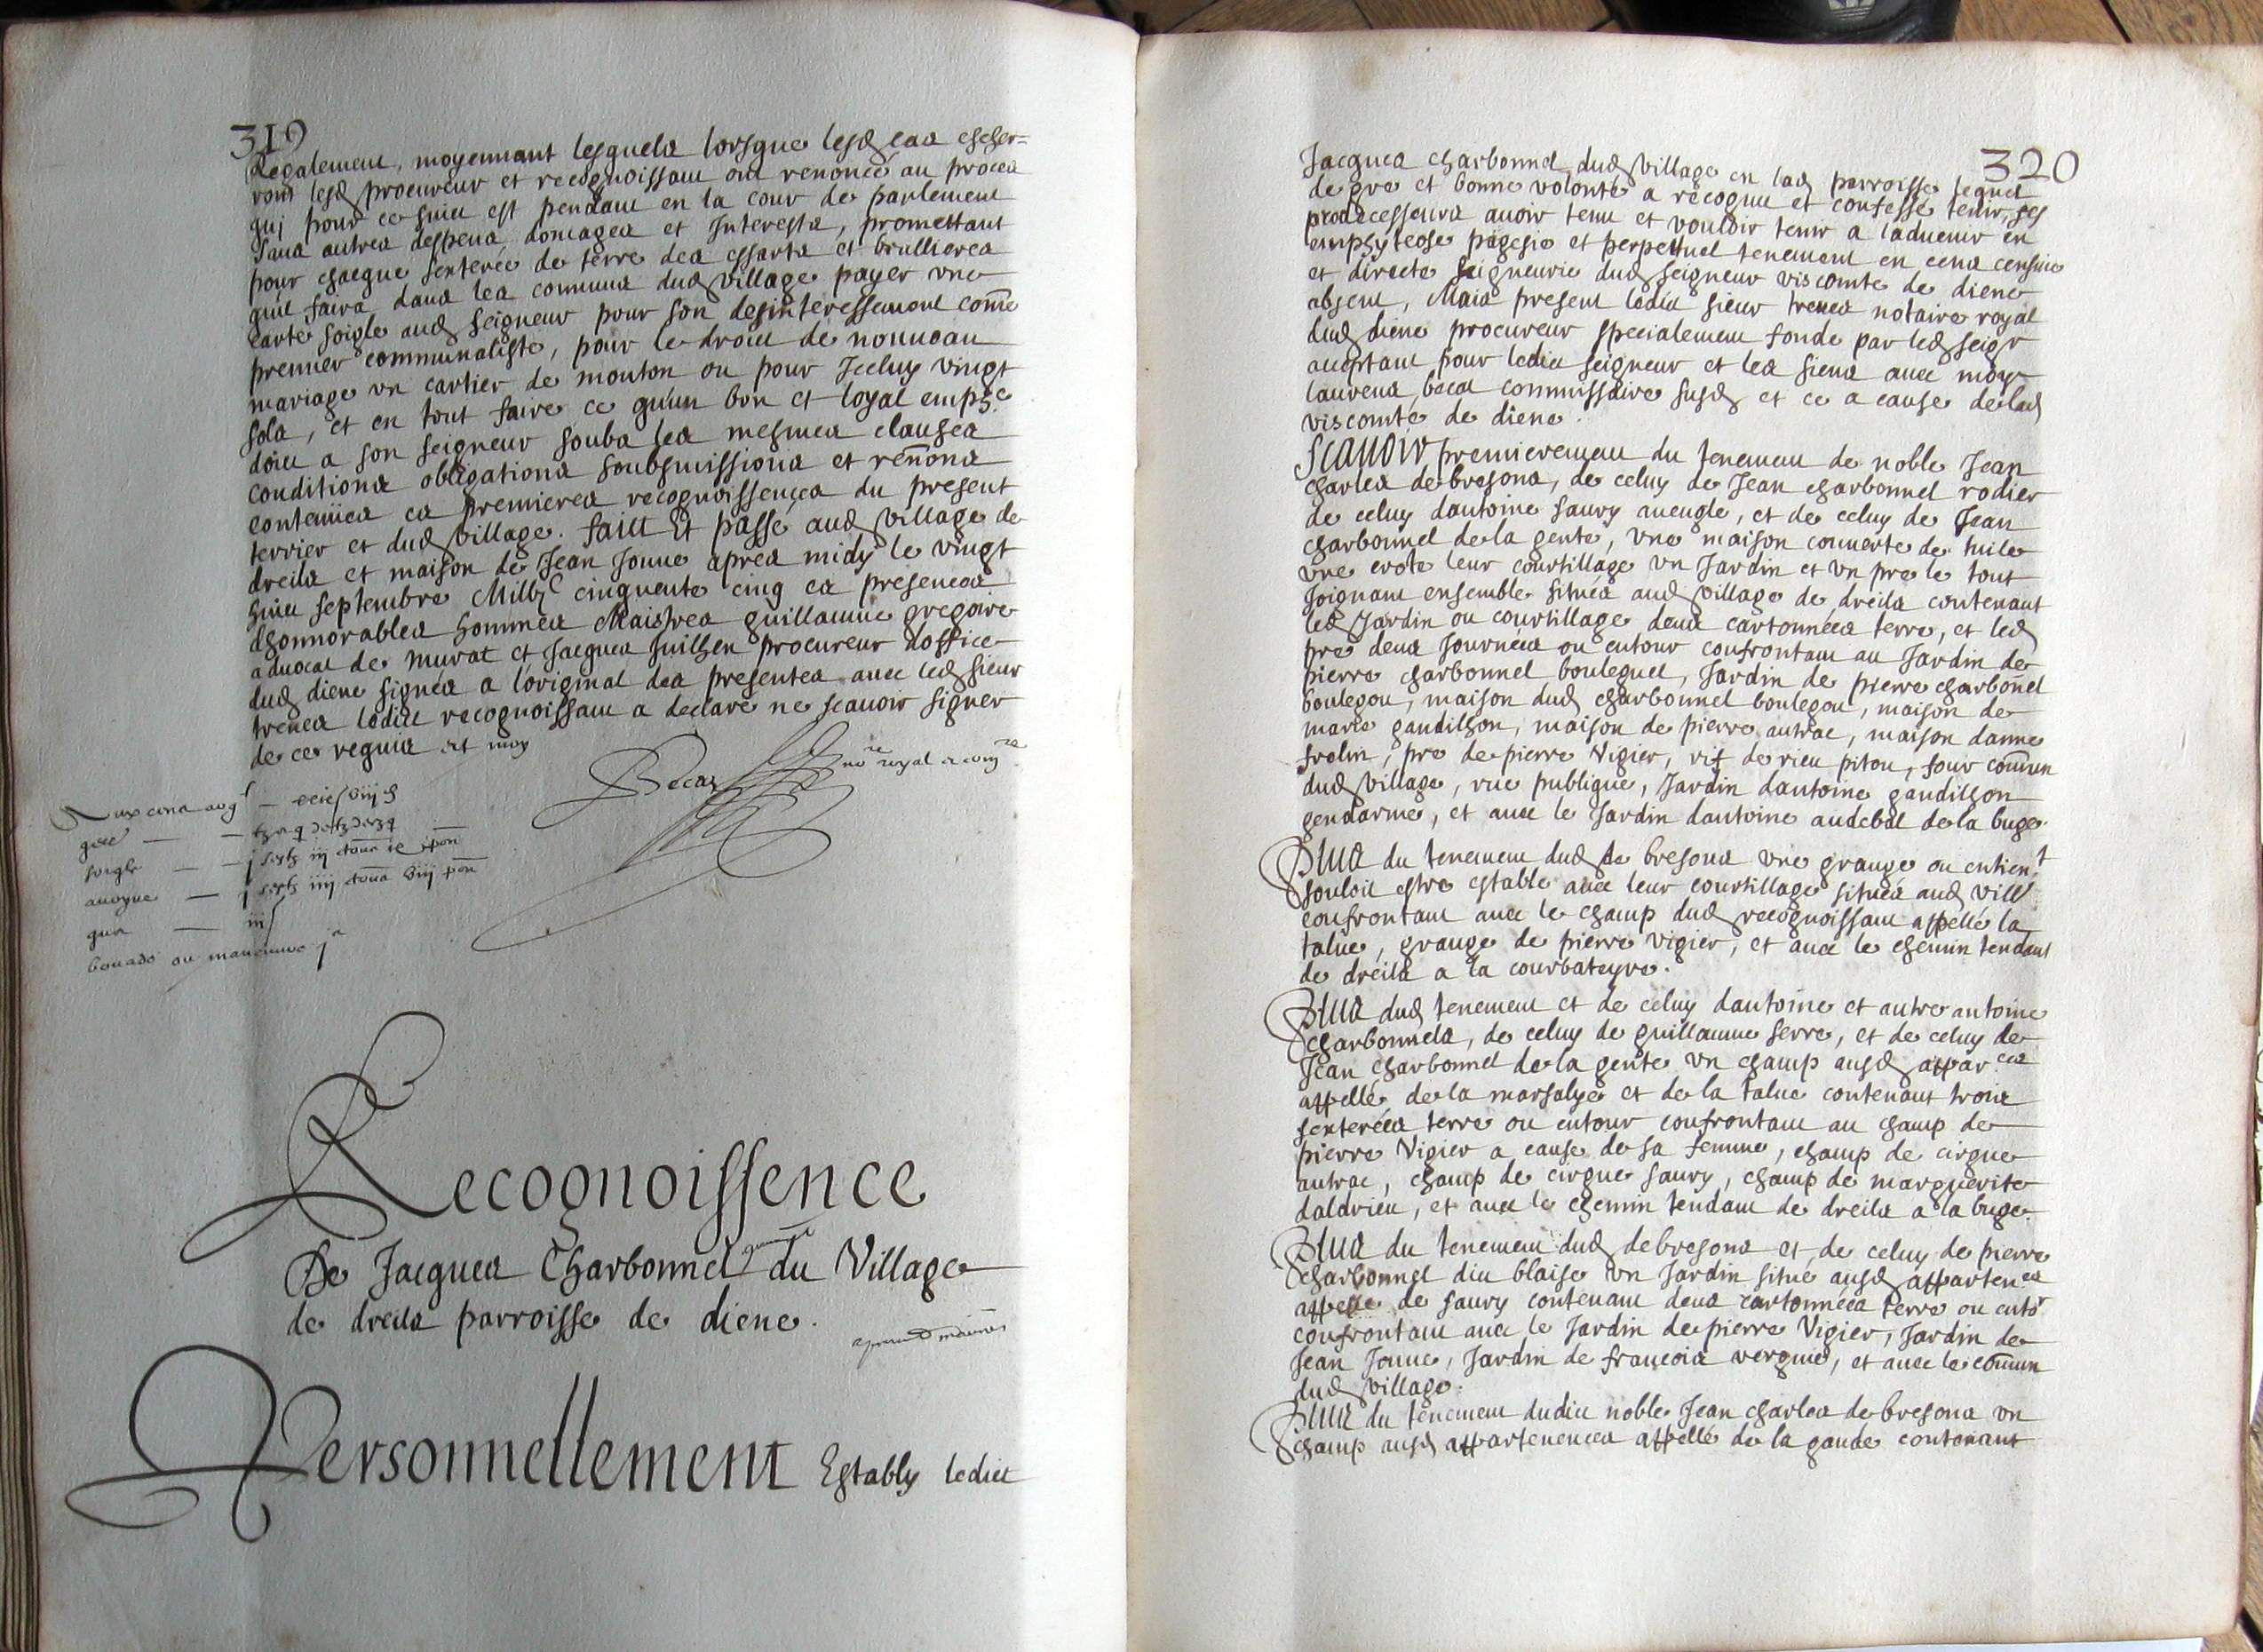 319
Regalement, moyennant lesquels lorsque lesd cas escher=
ront lesd procureur et recognoissant ont renoncé au proces
quj pour ce suiet est pendant en la cour de parlement
sans autres despens domages et Interests, promettant
pour chacque sexterée de terre des essarts et brullieres
quil faira dans les communs dud village payer une
carte soigle aud seigneur pour son desinteressement come
premier communaliste, pour le droict de nouueau
mariage vn cartier de mouton ou pour Jceluy vingt
sols, et en tout faire ce qu'un bon et loyal emphe
doict a son seigneur soubs les mesmes clauses
conditions obligations soubsmissions et renons
contenües ez premieres recognoissences du present
terrier et dud village. faict Et passé aud village de
dreils et maison de Jean Jouue apres midy le vingt
huict septembre Mil vjc cinquante cinq ez presences
dhonnorables hommes Maistres guillaume gregoire
aduocat de murat et Jacques Juilhen procureur doffice
dud diene signés a loriginal des presentes auec led sieur
trenes ledict recognoissant a declaré ne scauoir signer
de ce requis et moy
Becas nore royal et comre
Aux cens arg
soigle
auoyne
bouade ou manoeuure ja
Recognoissence
De Jacques Charbonnel du Village
de dreils parroisse de diene.
Personnellement Estably ledict
320
Jacques charbonnel dud village en lad parroisse lequel
de gre et bonne volonté a recognu et confessé tenir, ses
predecesseurs auoir tenu et vouloir tenir a laduenir en
emphyteose pagesie et perpetuel tenement en cens censiue
et directe seigneurie dud seigneur viscomte de diene
absent, Mais present ledict sieur trenes notaire royal
dud diene procureur specialement fonde par led seigr
acceptant pour ledict seigneur et les siens auec moy
laurens becas commissaire susd et ce a cause de lad
viscomté de diene.
Scauoir premierement du tenement de noble Jean
charles de bresons, de celuy de Jean charbonnel rodier
de celuy dantoine saury aueugle, et de celuy de Jean
charbonnel de la gente, vne maison couuerte de tuile
vne crote leur courtillage vn Jardin et vn pre le tout
Joignant ensemble situés aud village de dreils contenant
led Jardin ou courtillage deux cartonnées terre, et led
pre deux Journées ou entour confrontant au Jardin de
pierre charbonnel bouleguet, Jardin de pierre charbonel
boulegou, maison dud charbonnel boulegou, maison de
marie gandilhon, maison de pierre autrac, maison danne
frolin, pre de pierre Vigier, rif de rieu pitou, four comun
dud village, rue publique, Jardin dantoine gandilhon
gendarme, et auec le Jardin dantoine audebal de la buge.
Plus du tenement dud de bresons vne grange ou entient
souloit estre estable auec leur courtillage situés aud vill
confrontant auec le champ dud recognoissant appellé la
talue, grange de pierre vigier, et auec le chemin tendant
de dreils a la courbateyre.
Plus dud tenement et de celuy dantoine et autre antoine
charbonnels, de celuy de guillaume serre, et de celuy de
Jean charbonnel de la gente vn champ ausd apparces
appellé de la marsalye et de la talue contenant trois
sexterées terre ou entour confrontant au champ de
pierre Vigier a cause de sa femme, champ de cirgue
autrac, champ de cirgue saury, champ de marguerite
daldrieu, et auec le chemin tendant de dreils a la buge.
Plus du tenement dud de bresons et de celuy de pierre
charbonnel dict blaise vn Jardin situé ausd appartences
appellé de saury contenant deux cartonnées terre ou entor
confrontant auec le Jardin de pierre Vigier, Jardin de
Jean Jouue, Jardin de francois vergnie, et auec le comun
dud village.
Plus du tenement dudict noble Jean charles de bresons vn
champ ausd appartenences appellé de la gaude contenant